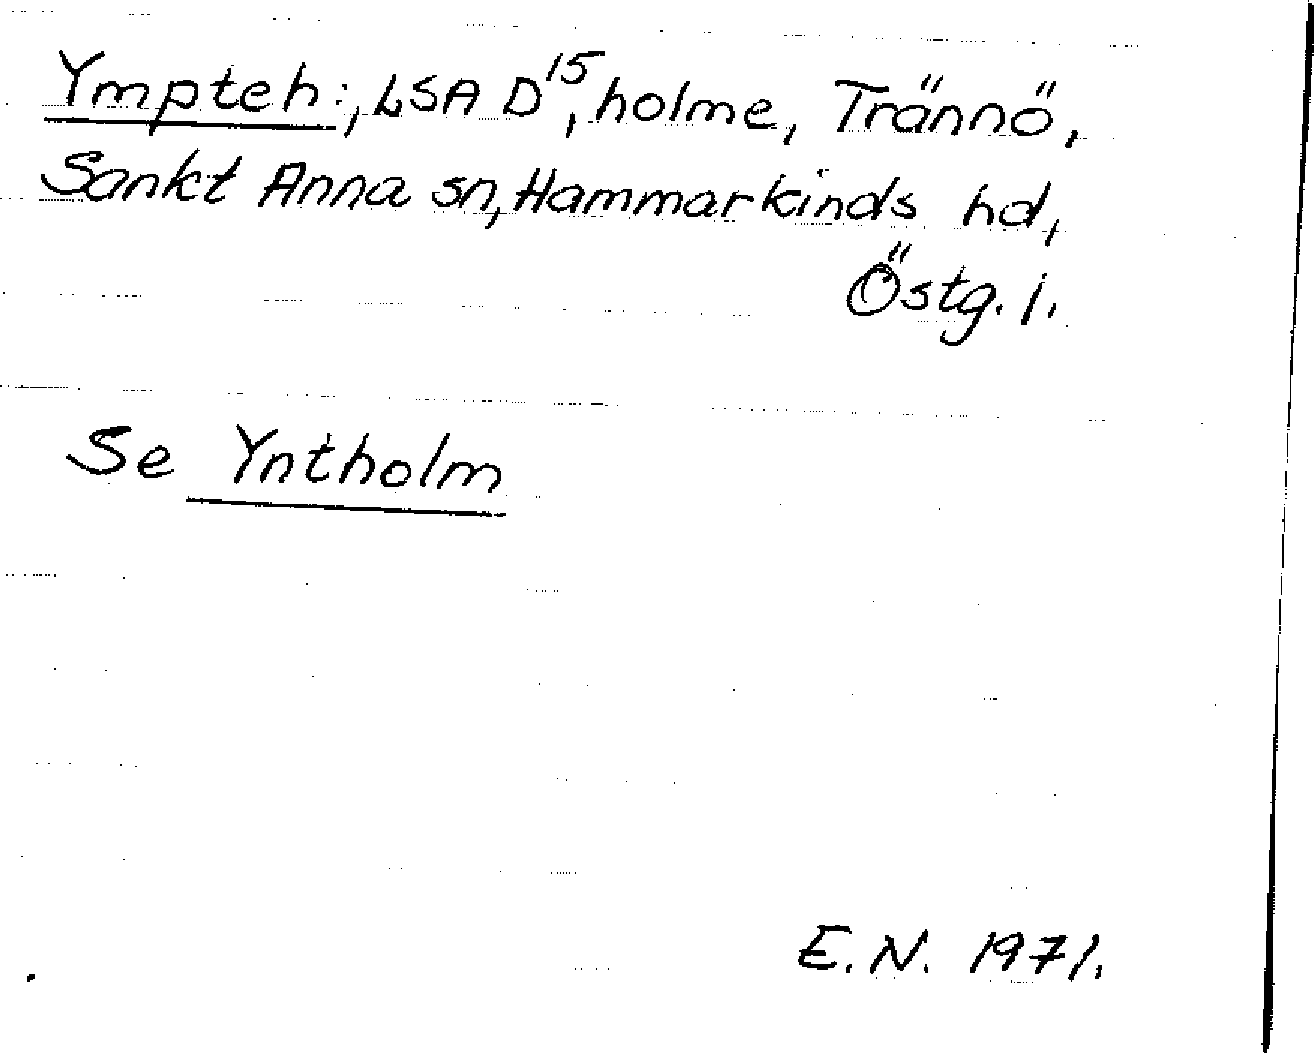 Ympteh:, LSA D¹⁵, holme, Trännö,
Sankt Anna sn, Hammarkinds hd,
Östg. l.
Se Yntholm
E.N. 1971.